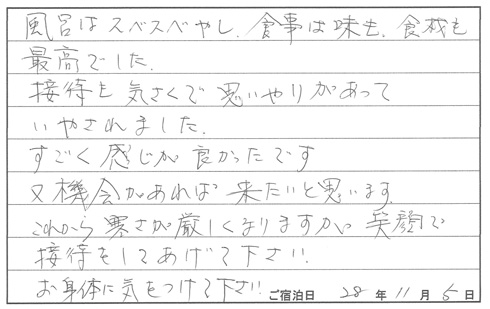 風呂はスベスベやし、食事は味も、食材も
最高でした。
接待も気さくで思いやりがあって
いやされました。
すごく感じが良かったです
又機会があれば来たいと思います。
これから寒さが厳しくなりますが、笑顔で
接待をしてあげて下さい。
お身体に気をつけて下さい
ご宿泊日 28年11月5日